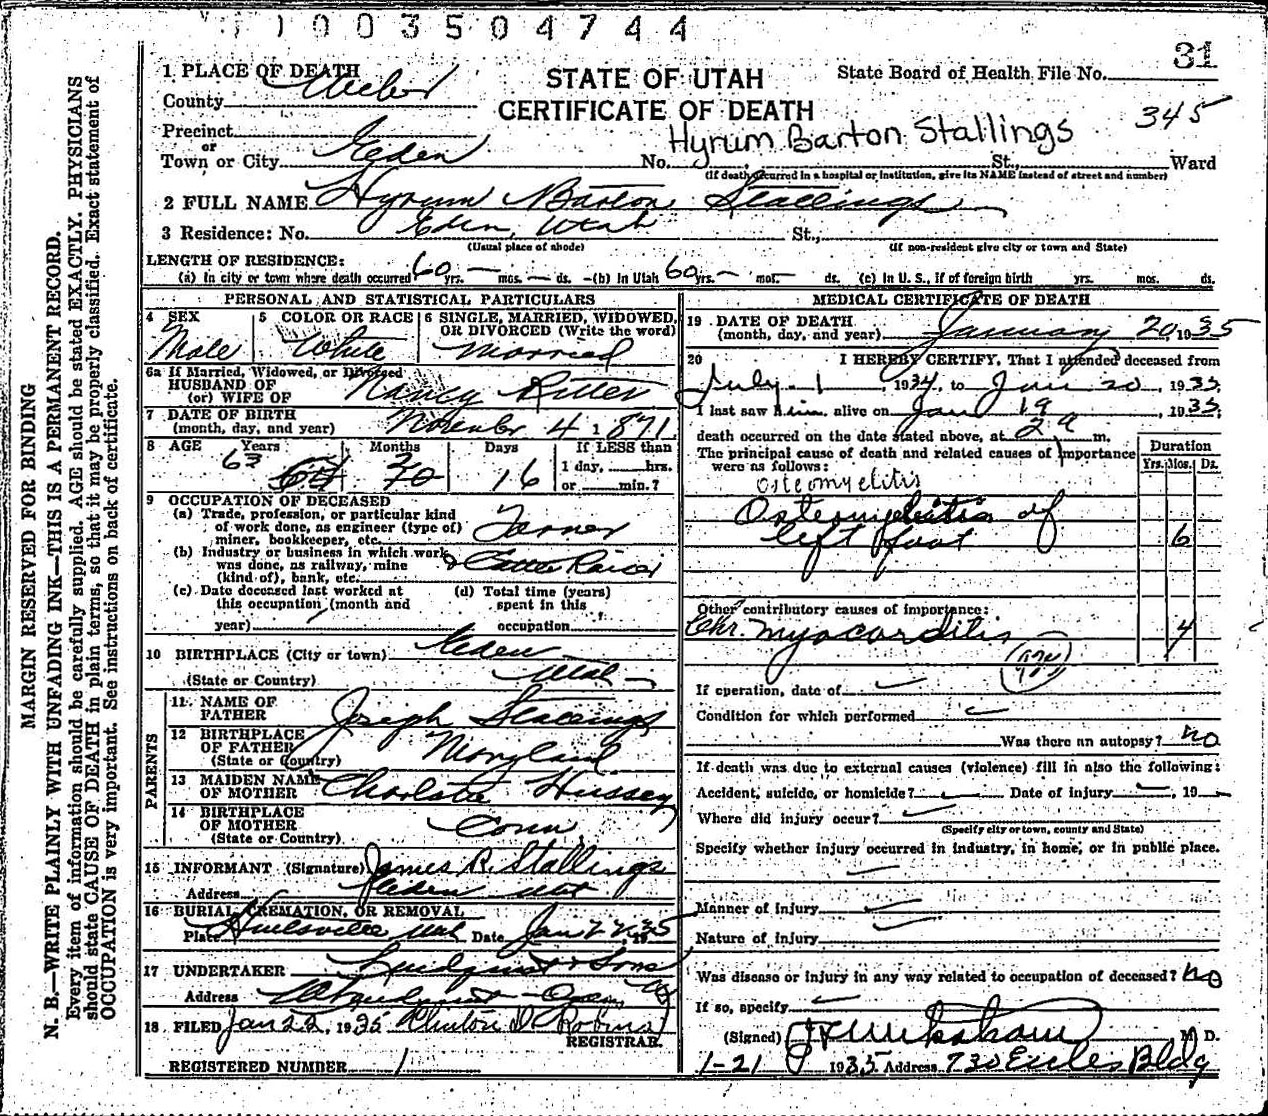 1003504744
31
1 PLACE OF DEATH
STATE OF UTAH
State Board of Health File No.
County Weber
CERTIFICATE OF DEATH
345
Precinct
or
Hyrum Barton Stallings
Town or City Eden No. St., Ward
(If death occurred in a hospital or institution, give its NAME instead of street and number)
2 FULL NAME Hyrum Barton Stallings
3 Residence: No. Eden, Utah St.,
(Usual place of abode) (If non-resident give city or town and State)
LENGTH OF RESIDENCE:
(a) In city or town where death occurred 60 yrs. — mos. — ds. (b) In Utah 60 yrs. — mos. — ds. (c) In U. S., if of foreign birth yrs. mos. ds.
PERSONAL AND STATISTICAL PARTICULARS
4 SEX 5 COLOR OR RACE 6 SINGLE, MARRIED, WIDOWED, OR DIVORCED (Write the word)
Male White Married
6a If Married, Widowed, or Divorced
HUSBAND OF
(or) WIFE OF Nancy Ritter
7 DATE OF BIRTH
(month, day, and year) November 4 1871
8 AGE Years Months Days If LESS than
63 16 1 day, hrs.
or min.?
9 OCCUPATION OF DECEASED
(a) Trade, profession, or particular kind
of work done, as engineer (type of)
miner, bookkeeper, etc. Farmer
(b) Industry or business in which work
was done, as railway, mine
(kind of), bank, etc. & Cattle Raiser
(c) Date deceased last worked at
this occupation (month and
year)
(d) Total time (years)
spent in this
occupation
10 BIRTHPLACE (City or town) Eden
(State or Country) Utah
PARENTS
11 NAME OF
FATHER Joseph Stallings
12 BIRTHPLACE
OF FATHER Maryland
(State or Country)
13 MAIDEN NAME
OF MOTHER Charlotte Hussey
14 BIRTHPLACE
OF MOTHER Conn.
(State or Country)
15 INFORMANT (Signature) James R. Stallings
Address Eden Utah
16 BURIAL, CREMATION, OR REMOVAL
Place Huntsville Utah Date Jan 22, 1935
17 UNDERTAKER Lindquist & Sons
Address Ogden
18 FILED Jan 22, 1935 Clinton D. Robins
REGISTRAR.
REGISTERED NUMBER 1
MEDICAL CERTIFICATE OF DEATH
19 DATE OF DEATH
(month, day, and year) January 20, 1935
20 I HEREBY CERTIFY, That I attended deceased from
July 1 1934, to Jan 20, 1935
I last saw him alive on Jan 19, 1935,
death occurred on the date stated above, at 2 a m.
The principal cause of death and related causes of importance
were as follows:
Duration
Yrs. Mos. Ds.
Osteomyelitis
Osteomyelitis of
left foot 6
Other contributory causes of importance:
Chr. myocarditis 4
If operation, date of
Condition for which performed
Was there an autopsy? no
If death was due to external causes (violence) fill in also the following:
Accident, suicide, or homicide? — Date of injury —, 19—
Where did injury occur?
(Specify city or town, county and State)
Specify whether injury occurred in industry, in home, or in public place.
Manner of injury
Nature of injury
Was disease or injury in any way related to occupation of deceased? No
If so, specify
(Signed) M. D.
1-21 1935 Address 730 Eccles Bldg
MARGIN RESERVED FOR BINDING
N. B.—WRITE PLAINLY WITH UNFADING INK—THIS IS A PERMANENT RECORD.
Every item of information should be carefully supplied. AGE should be stated EXACTLY. PHYSICIANS
should state CAUSE OF DEATH in plain terms, so that it may be properly classified. Exact statement of
OCCUPATION is very important. See instructions on back of certificate.